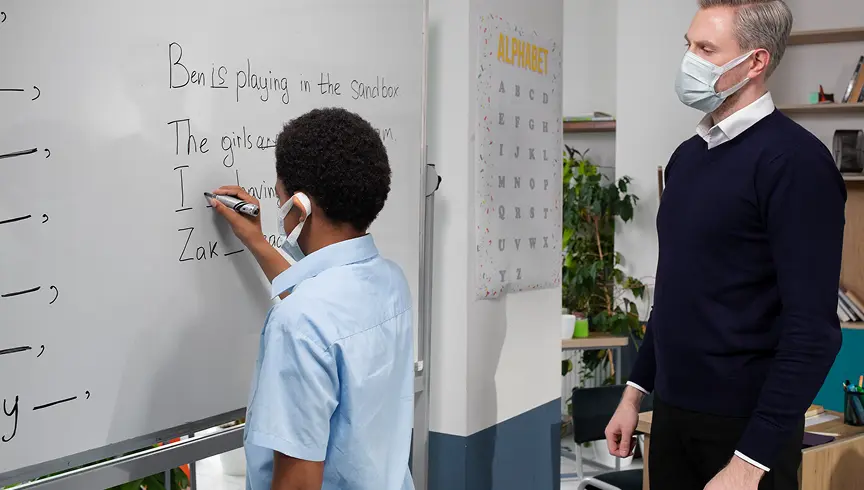 Ben is playing in the sandbox
The girls
I
Zak _
y _ ,
ALPHABET
A B C D
E F G H
I J K L
M N O P
Q R S T
U V W X
Y Z